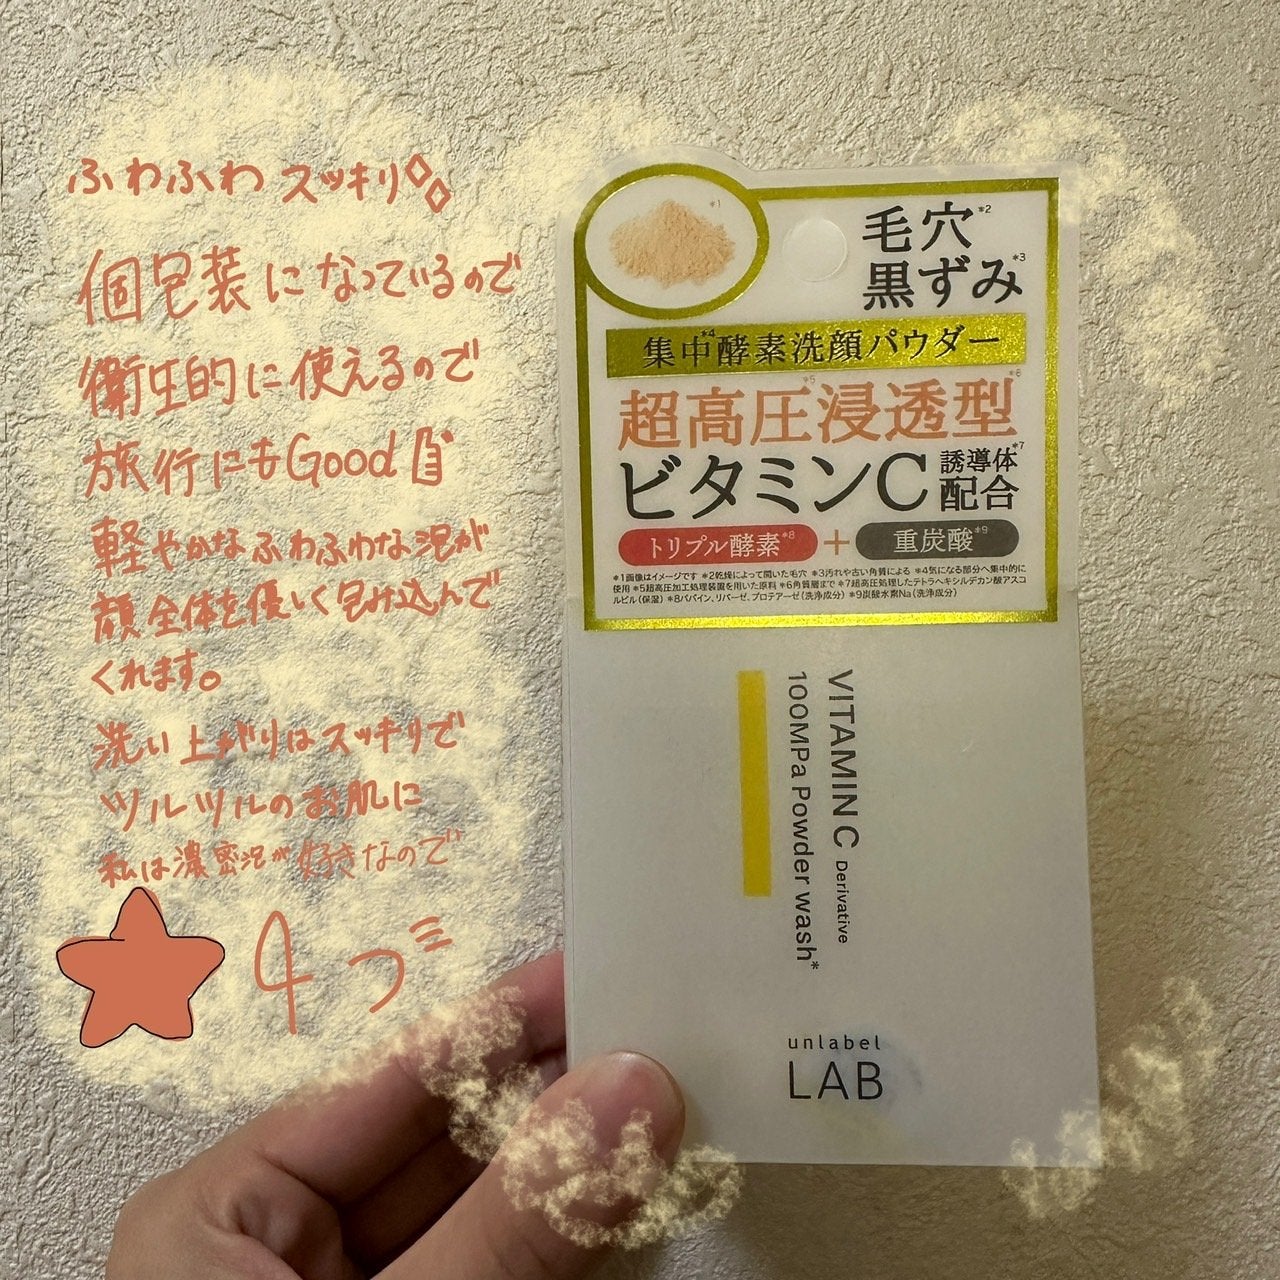 ふわふわスッキリ
個包装になっているので
衛生的に使えるので
旅行にもGood
軽やかなふわふわな泡が
顔全体を優しく包み込んで
くれます。
洗い上がりはスッキリで
ツルツルのお肌に
私は濃密泡が好きなので
4つ
*1
毛穴*2
黒ずみ*3
集中*4酵素洗顔パウダー
超高圧*5浸透型*6
ビタミンC誘導体*7配合
トリプル酵素*8+重炭酸*9
*1画像はイメージです *2乾燥によって開いた毛穴 *3汚れや古い角質による *4気になる部分へ集中的に
使用 *5超高圧加工処理装置を用いた原料 *6角質層まで *7超高圧処理したテトラヘキシルデカン酸アスコ
ルビル(保湿) *8パパイン、リパーゼ、プロテアーゼ(洗浄成分) *9炭酸水素Na(洗浄成分)
VITAMIN C Derivative
100MPa Powder wash*
unlabel
LAB